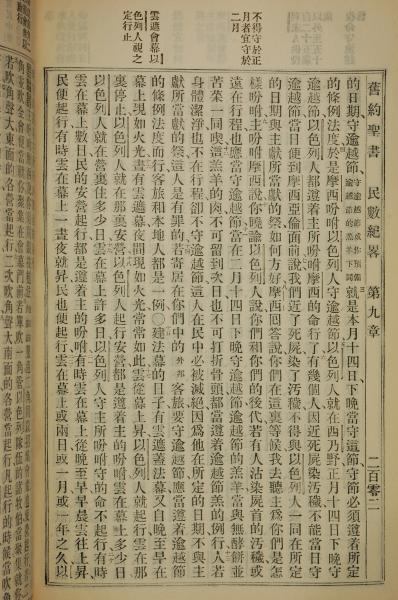 不得守於正
月者宜守於
二月
雲遮會幕以
色列人視之
定行止
舊約聖書 民數紀畧 第九章 二百零二
的日期守逾越節、守逾越節或作預備逾越節的羔羊下同就是本月十四日下晚、當守這節、守節必須遵着所定
的條例法度、於是摩西吩咐以色列人守逾越節、以色列人就在西乃野正月十四日下晚守
逾越節、以色列人都遵着主所吩咐摩西的命行了、有幾個人因近死屍染汚穢、不能當日守
逾越節、當日便到摩西亞倫面前、說我們近了死屍染了汚穢、不得與以色列人一同在所定
的日期與主獻所當獻的祭如何方好、摩西回答說、你們在這裏等候、我去聽主爲你們是怎
樣吩咐、主吩咐摩西說、你曉諭以色列人說、你們和你們的後代、若有人沾染死屍的汚穢、或
遠在行程、也應當守逾越節、當在二月十四日下晚守逾越節、逾越節的羔羊、當與無酵餅並
苦菜一同喫、這羔羊的肉不可留到次日、也不可打折骨頭、都當遵着逾越節羔羊的例行、若人
身體潔淨也不在行程、卻不守逾越節、這人在民中必被滅絕、因爲他在所定的日期不與主
獻所當獻的祭、這人是有罪的、若寄居在你們中的外邦客、也要守逾越節、應當遵着逾越節
的條例法度而行、客旅和本地人都是一例、○建法幕的日子、有雲遮蓋法幕、又自晚至早在
幕上現如火光、晝有雲遮幕、夜間現如火光、常常如此、雲從幕上昇、以色列人就起行、雲在那
裏停止、以色列人就在那裏安營、以色列人起行安營、都是遵着主的吩咐、雲在幕上多少日
以色列人就在營裏住多少日、雲在幕上許多日、以色列人守主所吩咐守的命、不起行、有時
雲在幕上數日、民的安營起行、都是遵着主的吩咐、有時雲在幕上從晚至早、早晨雲往上昇
民便起行、有時雲在幕上一晝夜、就昇、民也便起行、雲在幕上、或兩日或一月或一年之久、以
若吹角聲大、東面的各營當起行、二次吹角聲大、南面的各營當起行、凡起行的時候當吹角